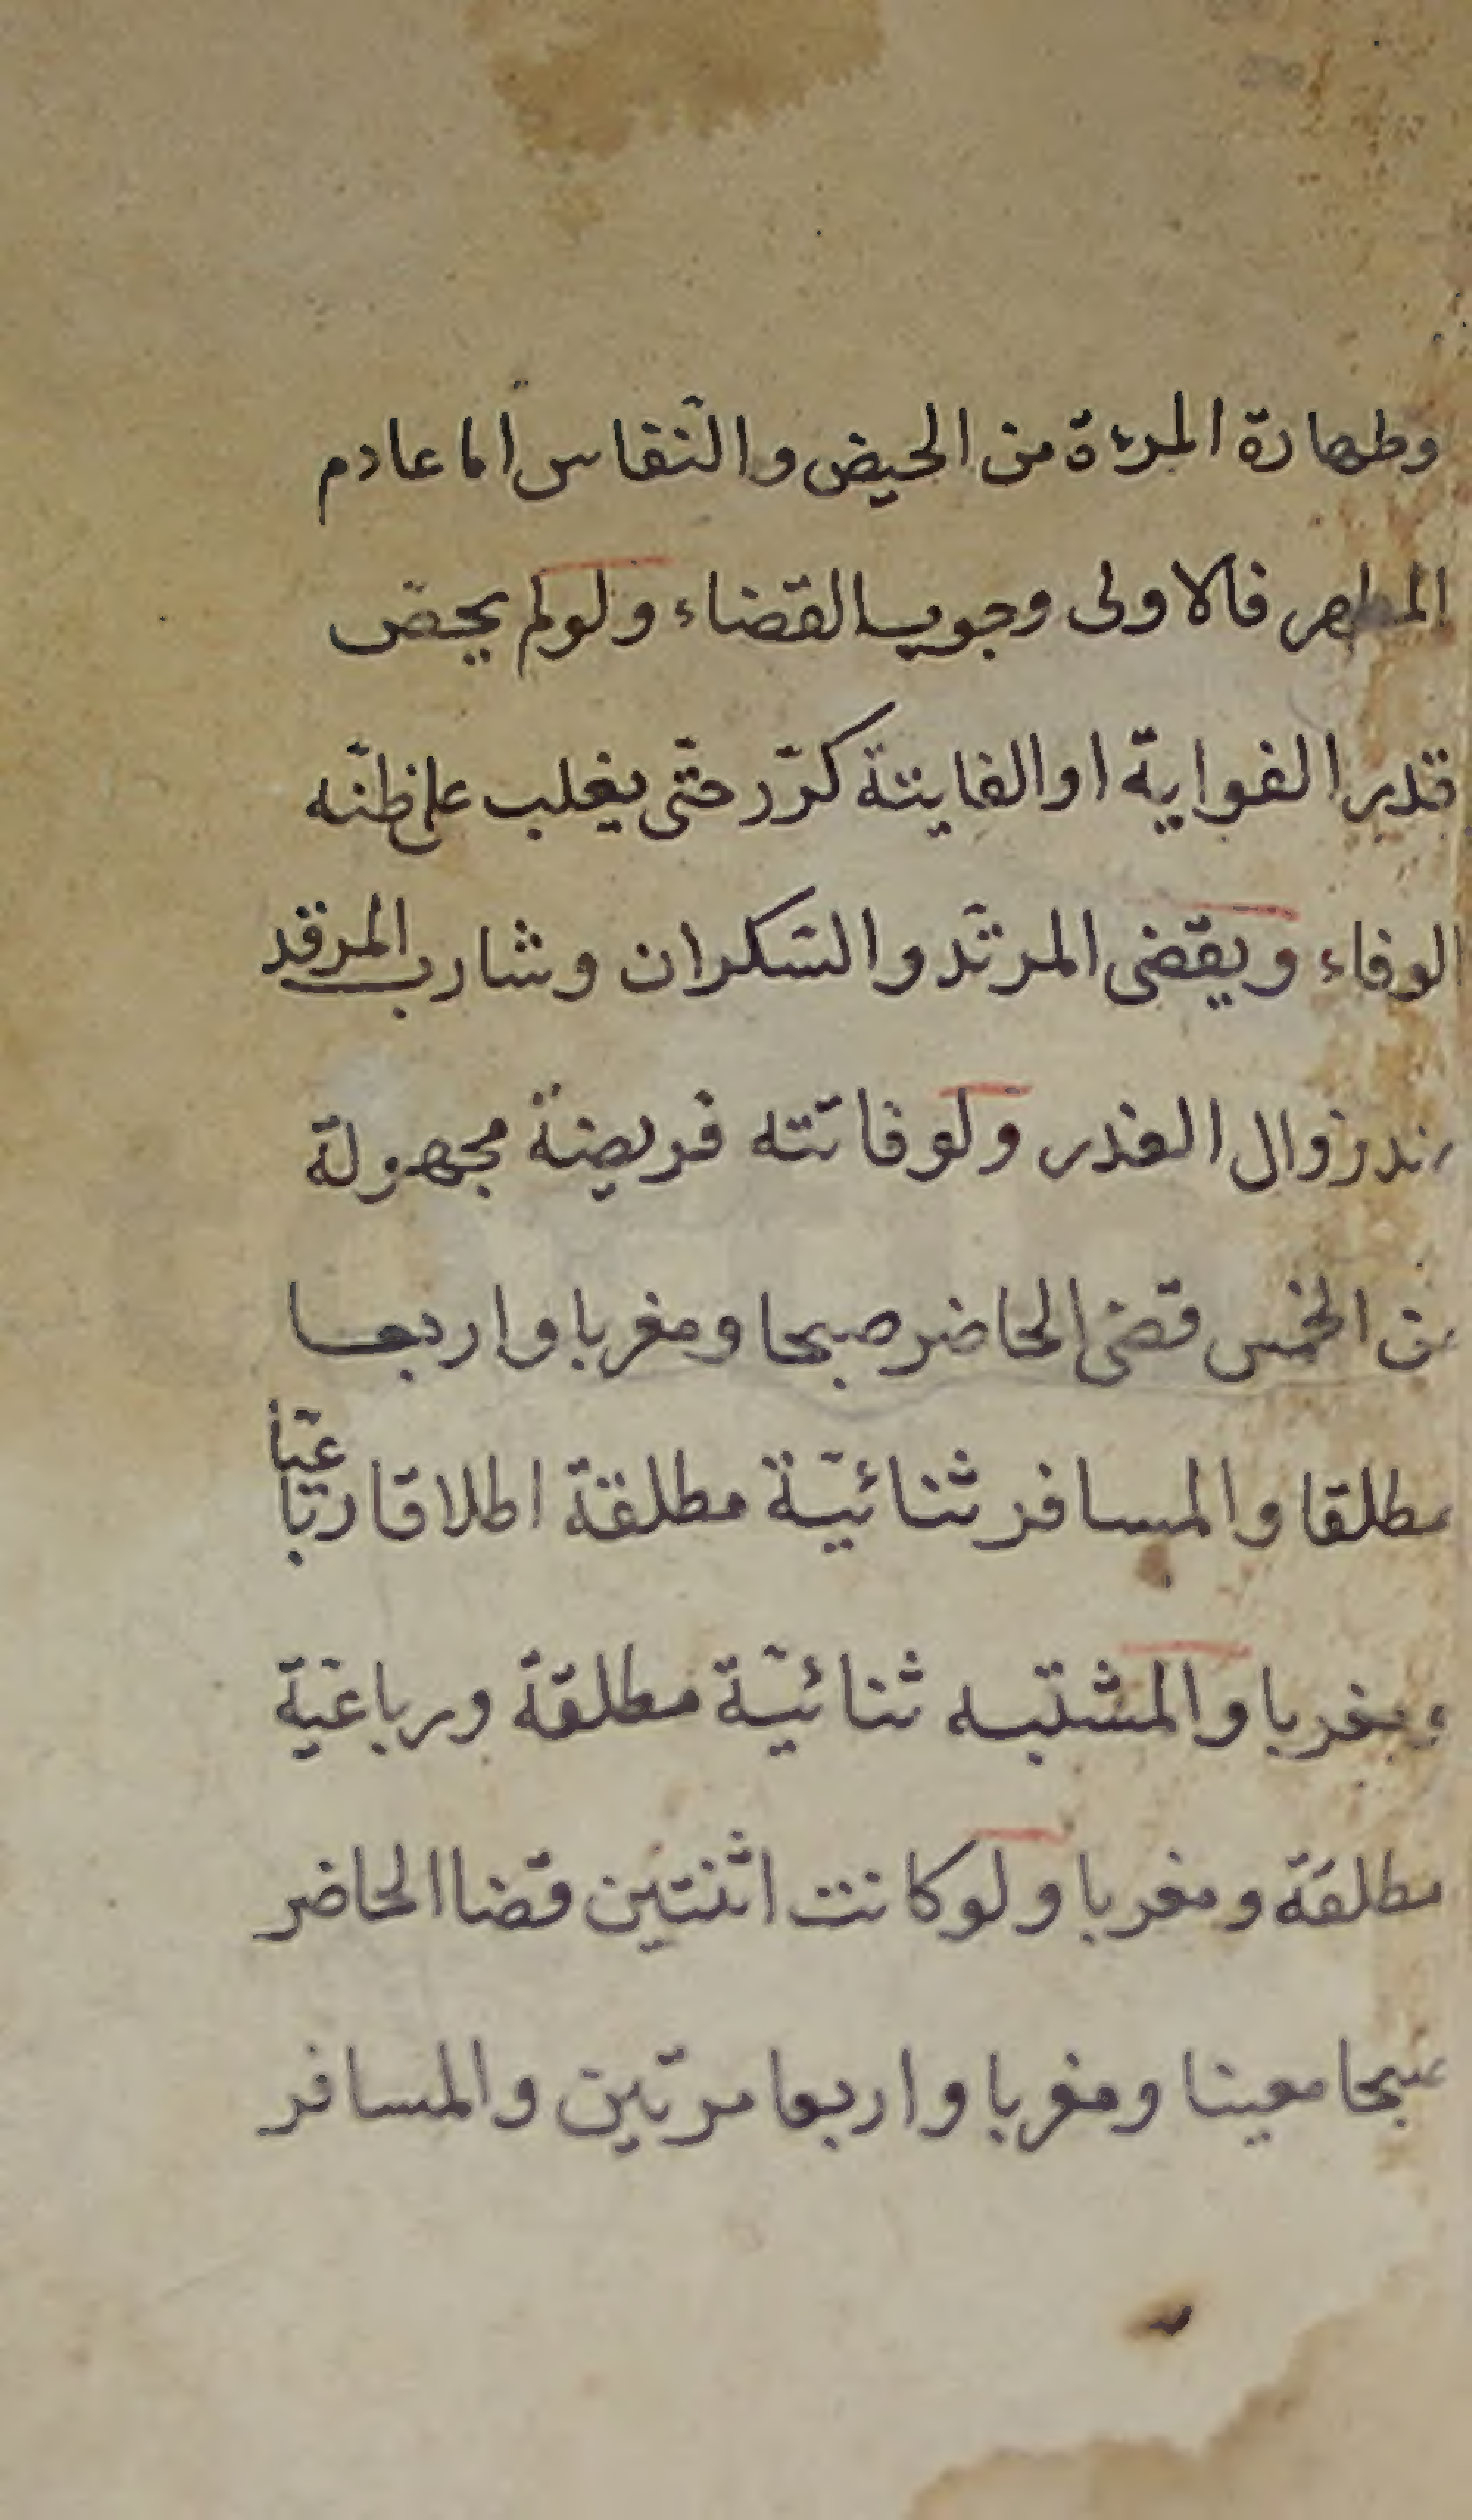 وطهارة المرءة من الحيض والنّفاس امّا عادم
المطهر فالاولى وجوب القضاء ولو لم يحص
قدر الفوايت او الفايتة كرّر حتّى يغلب على ظنّه
الوفاء ويقضى المرتّد والسّكران وشارب المرقد
عند زوال العذر ولو فاتته فريضة مجهولة
من الخمس قضى الحاضر صبحا ومغربا واربعا
مطلقا والمسافر ثنائيّة مطلقة اطلاقا رباعيّا
ومغربا والمشتبه ثنائيّة مطلقة ورباعيّة
مطلقة ومغربا ولو كانت اثنتين قضا الحاضر
صبحا معينا ومغربا واربعا مرتّين والمسافر